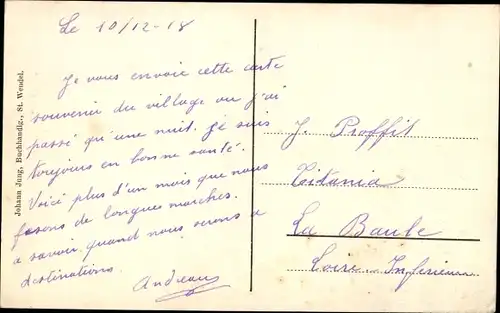 Le 10/12-18
Je vous envoie cette carte
souvenir du village ou j'ai
passé qu'une nuit. je suis
toujours en bonne santé.
Voici plus d'un mois que nous
fesons de longues marches.
a savoir quand nous serons a
destinations.
Andreau
J. Proffit
Titania
La Baule
Loire Inférieure
Johann Jung, Buchhandlg., St. Wendel.